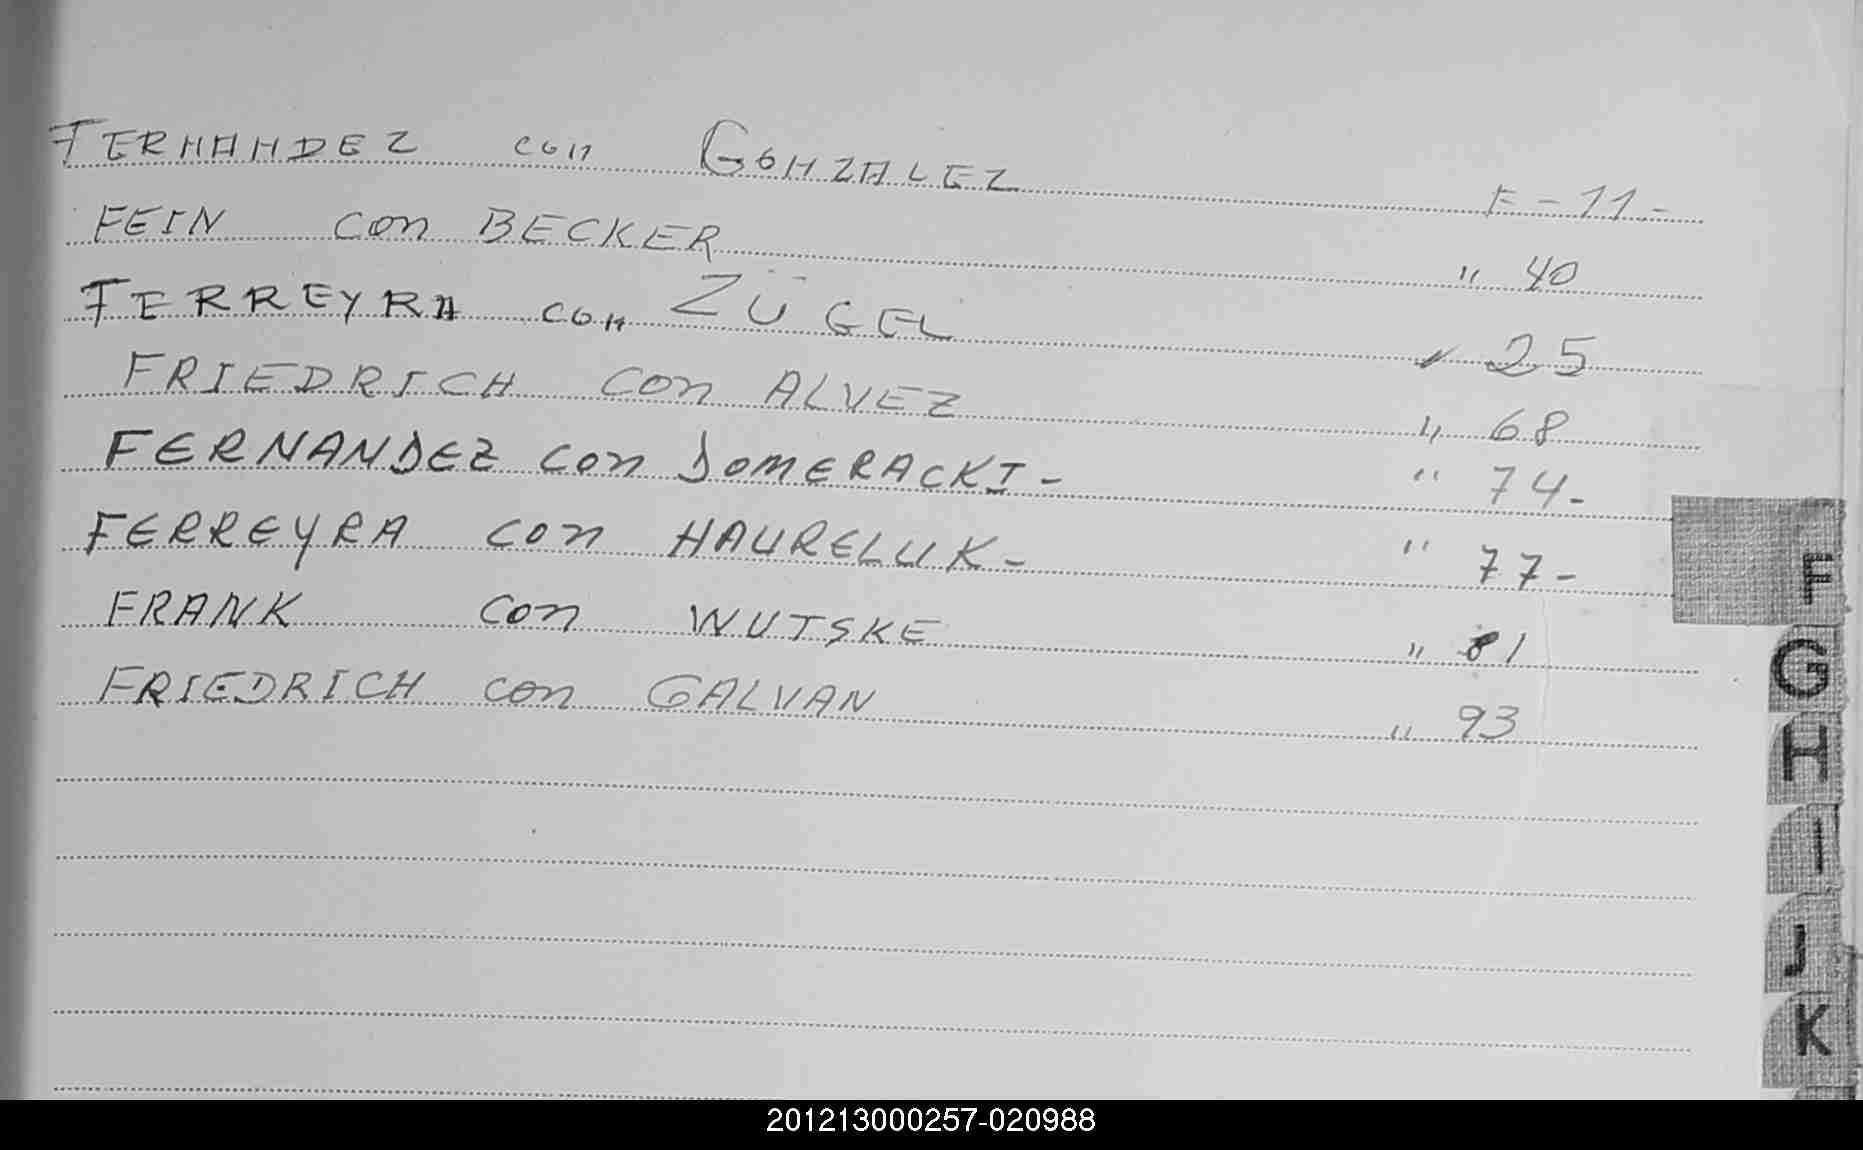 FERNANDEZ con GONZALEZ F-11.-
FEIN con BECKER " 40
FERREYRA con ZÜGEL " 25
FRIEDRICH con ALVEZ " 68
FERNANDEZ con DOMERACKI- " 74-
FERREYRA con HAURELUK- " 77-
FRANK con WUTSKE " 81
FRIEDRICH con GALVAN " 93
F
G
H
I
J
K
201213000257-020988